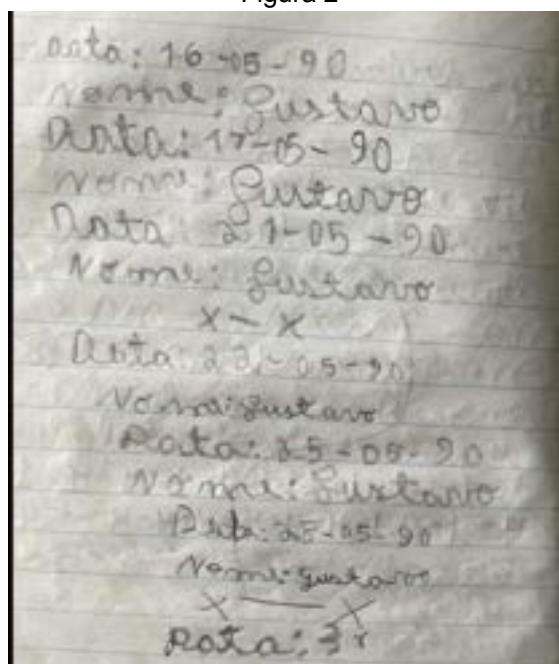 Figura 2
Data: 16-05-90
Nome: Gustavo
Data: 17-05-90
Nome: Gustavo
Data 21-05-90
Nome: Gustavo
x - x
Data: 23-05-90
Nome: Gustavo
Data: 25-05-90
Nome: Gustavo
Data: 28-05-90
Nome: Gustavo
X — X
Data: 31